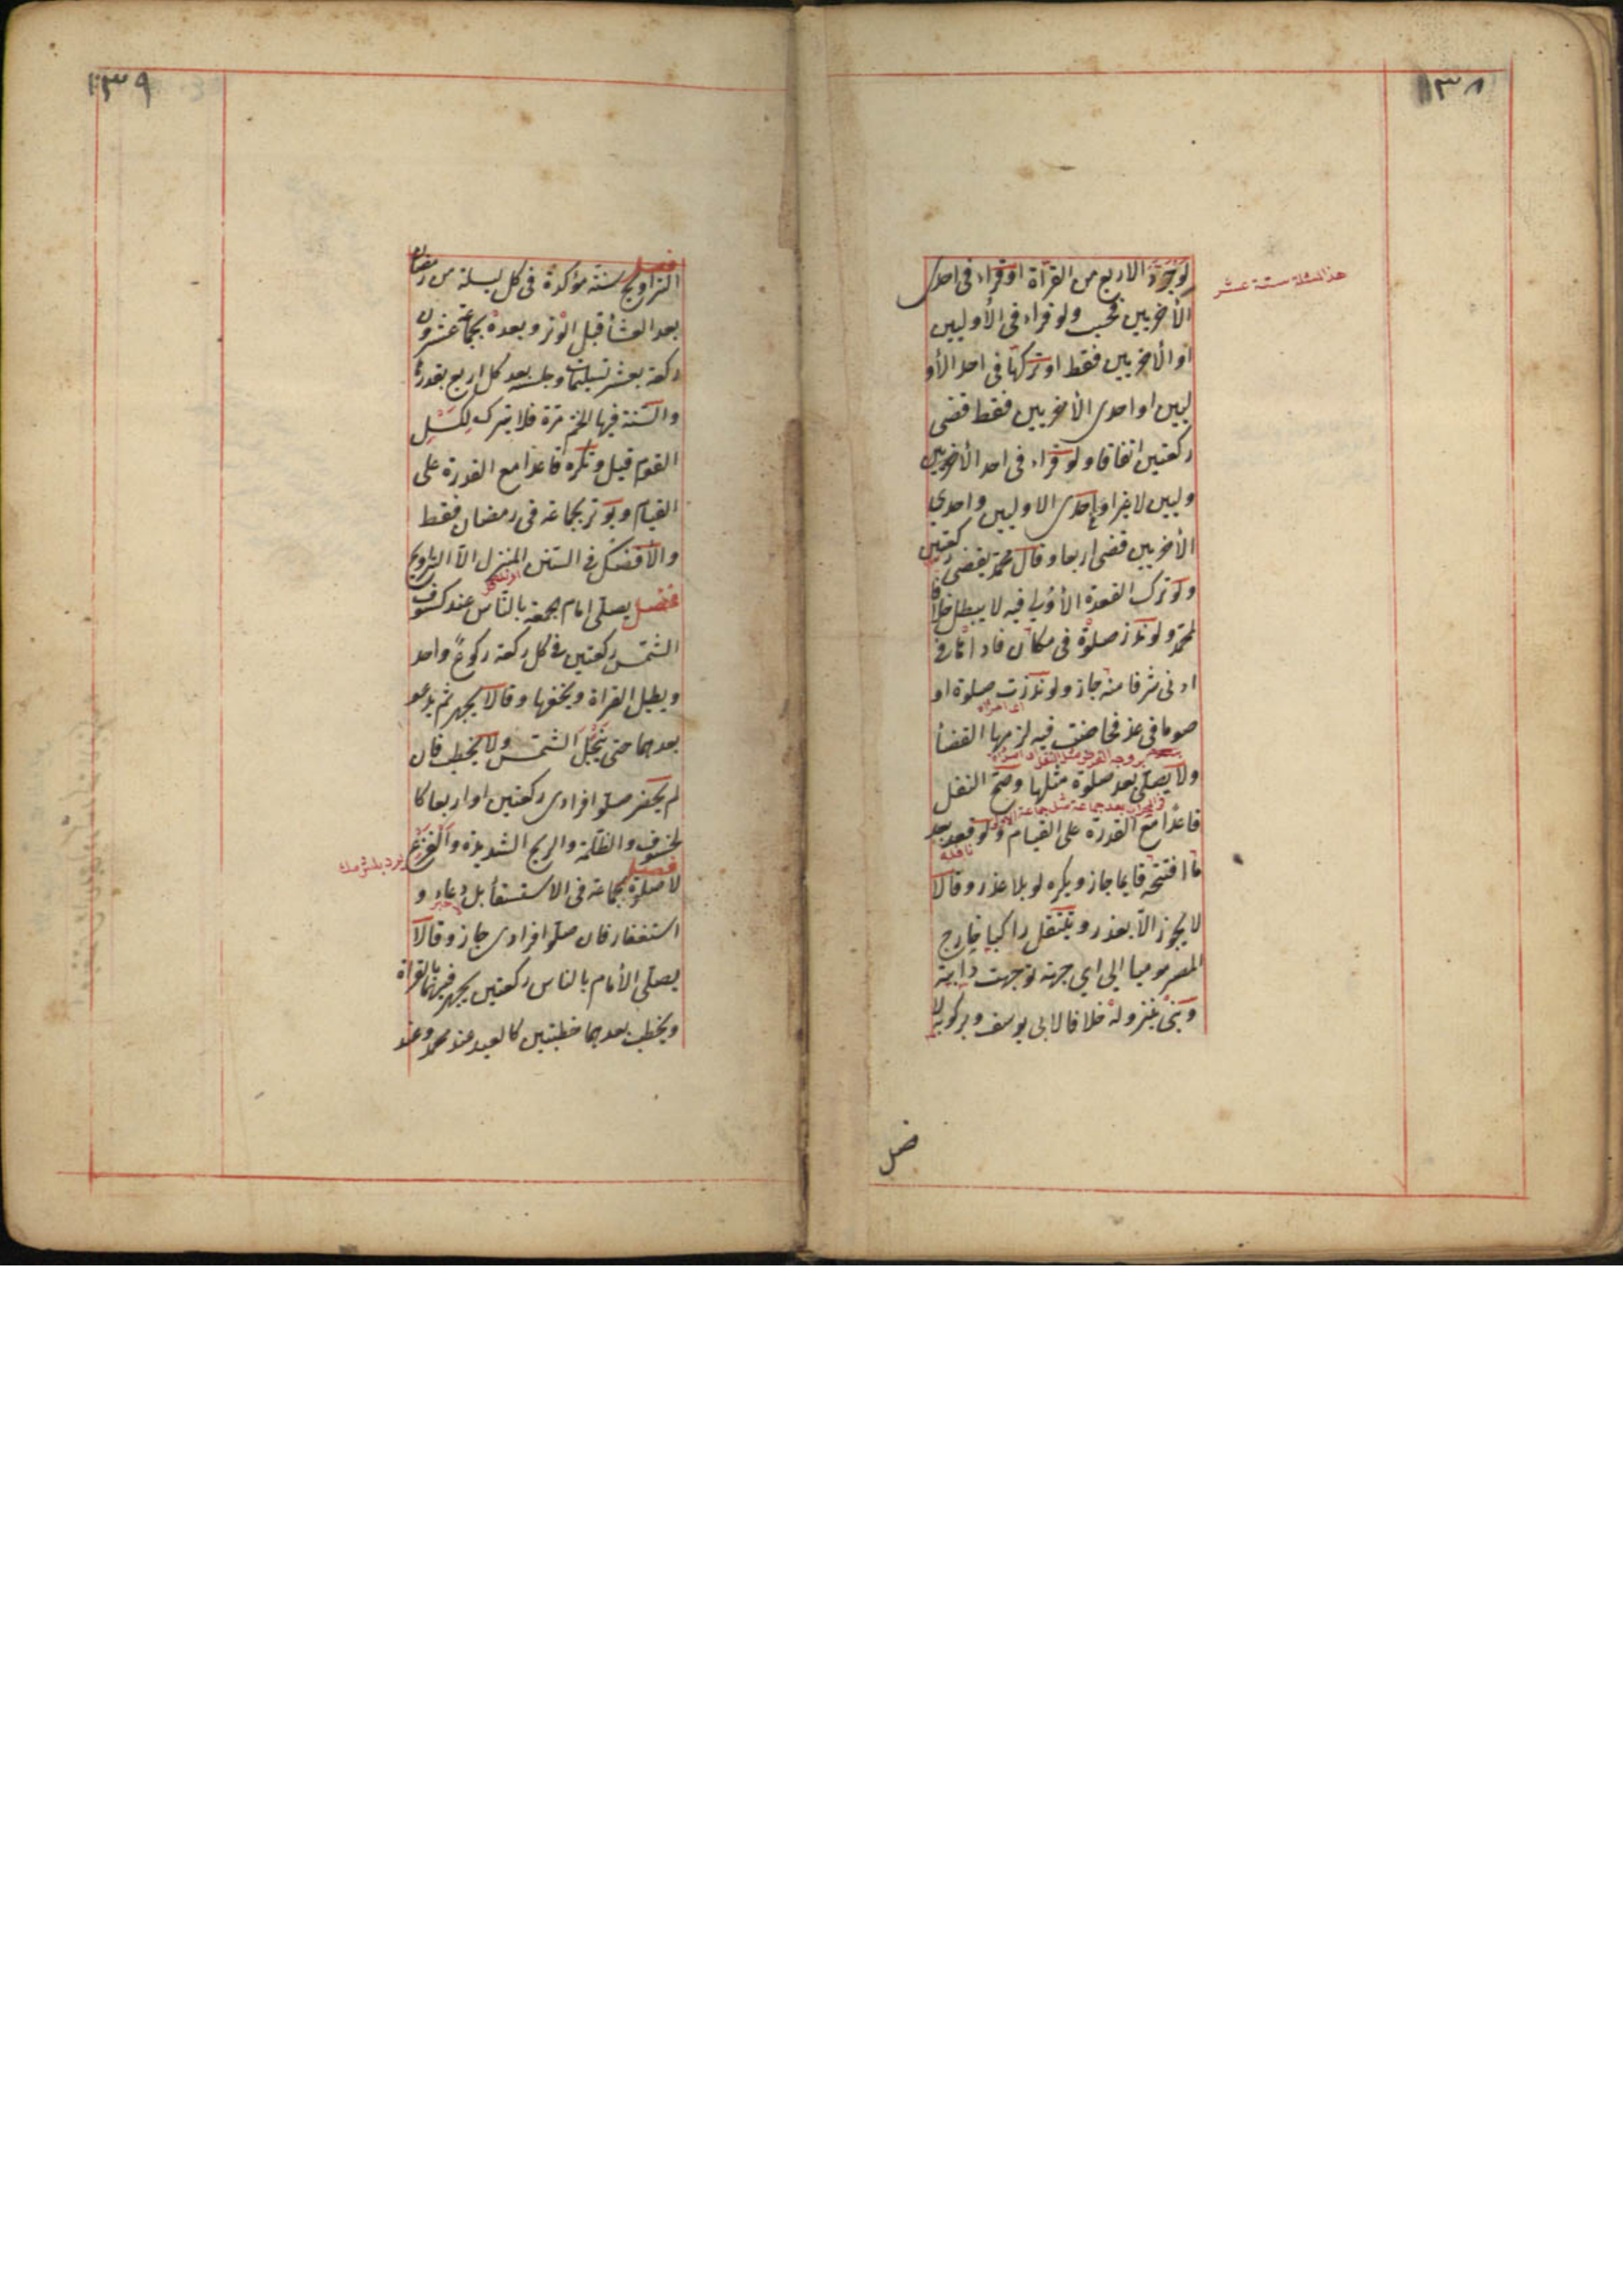 ١٣٨
لو جرد الاربع من القرأة او قراء فى احدى
الأخريين فحسب ولو قراء فى الأوليين
او الأخريين فقط او تركها فى احد الأو
ليين او احدى الأخريين فقط قضى
ركعتين اتفاقا ولو قراء فى احد الأخريين
وليين لاغير او احدى الاوليين واحدي
الأخريين قضى اربعا وقال محمد يقضى ركعتين
ولو ترك القعدة الأولي فيه لا يبطل خلافا
لمحمد ولو نذر صلوة فى مكان فاداها فى
ادنى شرفا منه جاز ولو نذرت صلوة او
صوما فى غد فحاضت فيه لزمها القضأ
ولا يصلى بعد صلوة مثلها وصح النفل
قاعدا مع القدرة على القيام ولو قعد بعد
ما افتتحه قايما جاز ويكره لو بلا عذر وقالا
لا يجوز الا بعذر ويتنفل راكبا خارج
المصر موميا الى اي جهة توجهت دابته
وبنى بنزوله خلافا لابى يوسف وبركوبه لا
هذا المسئلة ستة عشر
اى امرأة
نافلة
فصل
١٣٩
فصل
التراويح سنة مؤكدة فى كل ليلة من رمضان
بعد العشأ قبل الوتر وبعده بجماعة عشرون
ركعة بعشر تسليمات وجلسة بعد كل اربع بقدرها
والسنة فيها الختم مرة فلا يترك لكسل
القوم قيل وتكره قاعدا مع القدرة على
القيام ويوتر بجماعة فى رمضان فقط
والأفضل فى السنن المنزل الا التراويح
فصل يصلى امام الجمعة بالناس عند كسوف
الشمس ركعتين فى كل ركعة ركوع واحد
ويطيل القراة ويخفها وقالا يجهر ثم يدعو
بعدهما حتى ينجل الشمس ولا يخطب فان
لم يحضر صلوا فرادى ركعتين او اربعا كا
لخسوف والظلمة والريح الشديدة والفزع
فصل
لا صلوة بجماعة فى الاستسقأ بل دعاء و
استغفار فان صلوا فرادى جاز وقالا
يصلى الأمام بالناس ركعتين يجهر فيهما بالقراة
ويخطب بعدهما خطبتين كالعيد عند محمد وعند